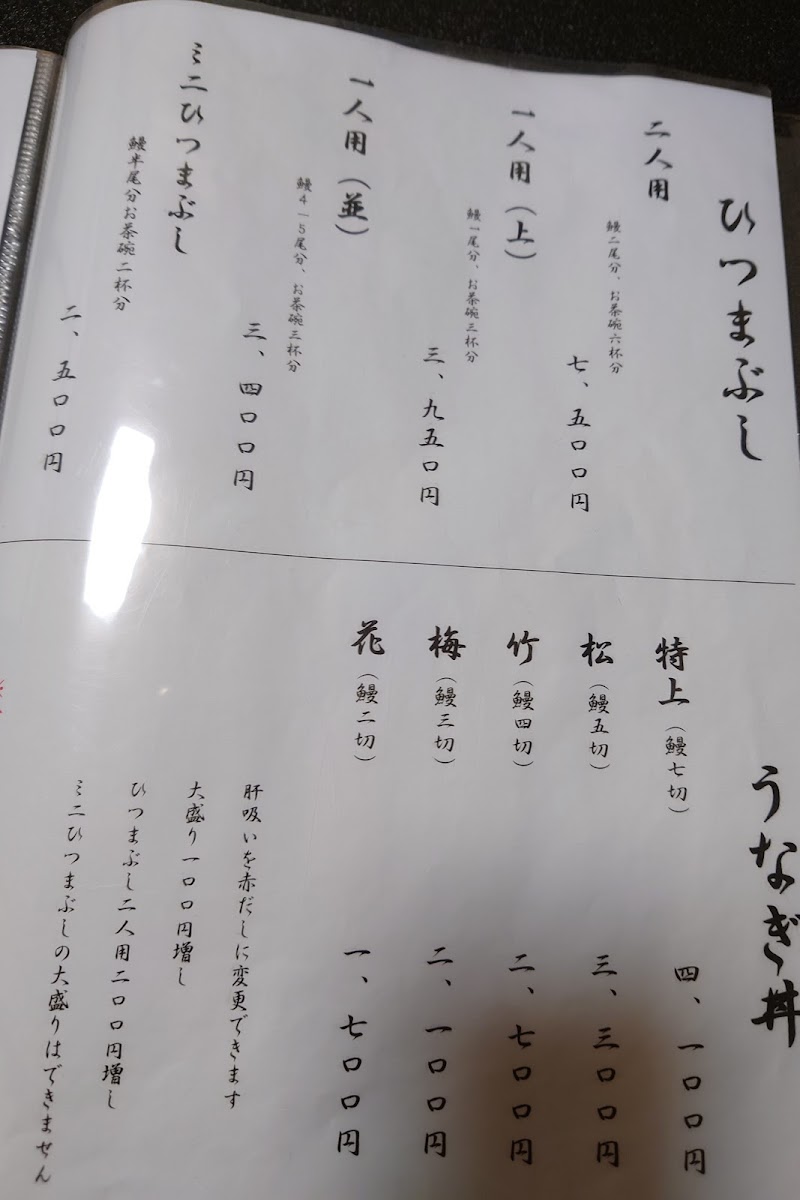 ひつまぶし
二人用
鰻二尾分、お茶碗六杯分
七、五〇〇円
一人用（上）
鰻一尾分、お茶碗三杯分
三、九五〇円
一人用（並）
鰻４－５尾分、お茶碗三杯分
三、四〇〇円
ミニひつまぶし
鰻半尾分お茶碗二杯分
二、五〇〇円
うなぎ丼
特上（鰻七切）
四、一〇〇円
松（鰻五切）
三、三〇〇円
竹（鰻四切）
二、七〇〇円
梅（鰻三切）
二、一〇〇円
花（鰻二切）
一、七〇〇円
肝吸いを赤だしに変更できます
大盛り一〇〇円増し
ひつまぶし二人用二〇〇円増し
ミニひつまぶしの大盛りはできません